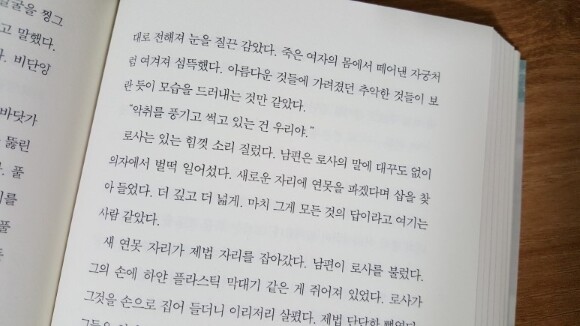 얼굴을 찡그
고 말했다.
비단앙
바닷가
뚫린
풀
를
풀
대로 전해져 눈을 질끈 감았다. 죽은 여자의 몸에서 떼어낸 자궁처
럼 여겨져 섬뜩했다. 아름다운 것들에 가려졌던 추악한 것들이 보
란 듯이 모습을 드러내는 것만 같았다.
"악취를 풍기고 썩고 있는 건 우리야."
로사는 있는 힘껏 소리 질렀다. 남편은 로사의 말에 대꾸도 없이
의자에서 벌떡 일어섰다. 새로운 자리에 연못을 파겠다며 삽을 찾
아 들었다. 더 깊고 더 넓게. 마치 그게 모든 것의 답이라고 여기는
사람 같았다.
새 연못 자리가 제법 자리를 잡아갔다. 남편이 로사를 불렀다.
그의 손에 하얀 플라스틱 막대기 같은 게 쥐어져 있었다. 로사가
그것을 손으로 집어 들더니 이리저리 살폈다. 제법 단단한